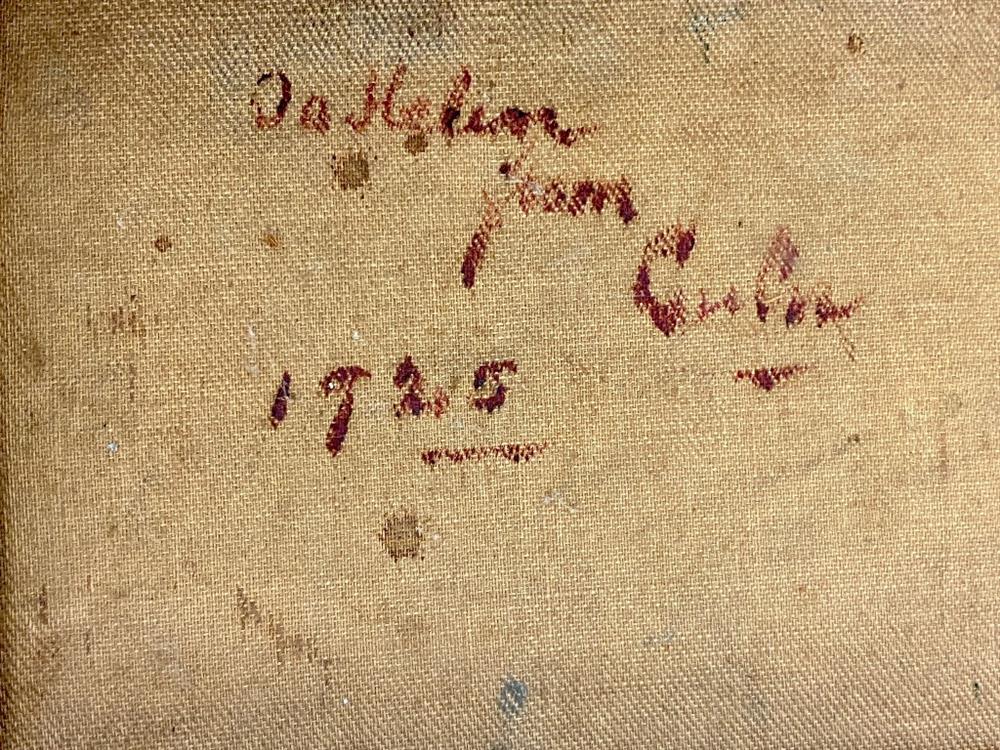 To Helen
from
Cuba
1925